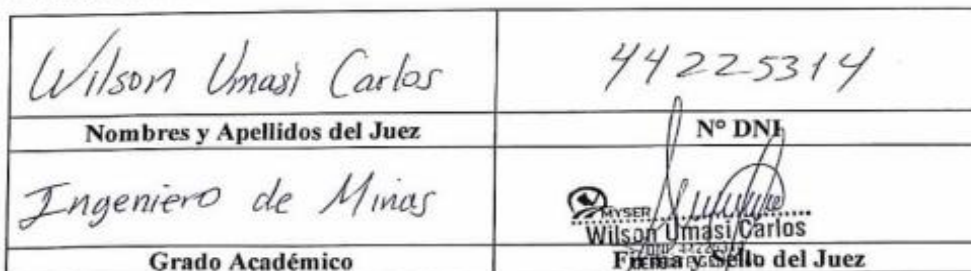 Wilson Umasi Carlos
44225314
Nombres y Apellidos del Juez
N° DNI
Ingeniero de Minas
MYSER
Wilson Umasi Carlos
Grado Académico
Firma y Sello del Juez